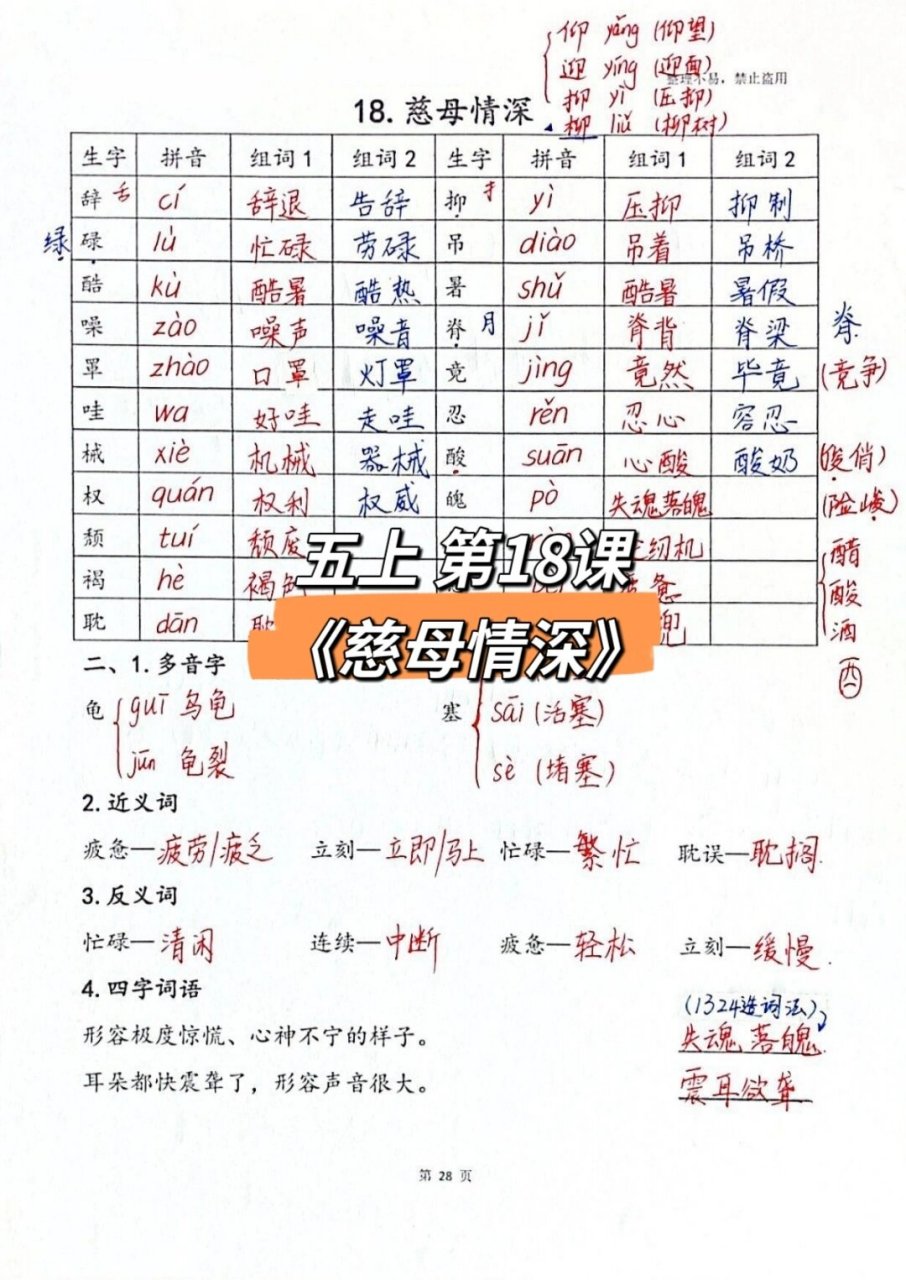 仰 yǎng (仰望)
迎 yíng (迎面)
整理不易，禁止盗用
抑 yì (压抑)
柳 liǔ (柳树)
18.慈母情深
生字 拼音 组词1 组词2 生字 拼音 组词1 组词2
辞 舌 cí 辞退 告辞 抑 扌 yì 压抑 抑制
绿 碌 lù 忙碌 劳碌 吊 diào 吊着 吊桥
酷 kù 酷暑 酷热 暑 shǔ 酷暑 暑假
噪 zào 噪声 噪音 脊 月 jǐ 脊背 脊梁 脊
罩 zhào 口罩 灯罩 竟 jìng 竟然 毕竟 (竞争)
哇 wa 好哇 走哇 忍 rěn 忍心 容忍
械 xiè 机械 器械 酸 suān 心酸 酸奶 (俊俏)
权 quán 权利 权威 魄 pò 失魂落魄 (险峻)
颓 tuí 颓废 纫机 醋
褐 hè 褐色 惫 酸
耽 dān 兜 酒
酉
五上 第18课
《慈母情深》
二、1.多音字
龟 guī 乌龟 塞 sāi (活塞)
jūn 龟裂 sè (堵塞)
2.近义词
疲惫—疲劳/疲乏 立刻—立即/马上 忙碌—繁忙 耽误—耽搁.
3.反义词
忙碌—清闲 连续—中断 疲惫—轻松 立刻—缓慢.
4.四字词语
(1324造词法)
形容极度惊慌、心神不宁的样子。 失魂落魄.
耳朵都快震聋了，形容声音很大。 震耳欲聋
第 28 页